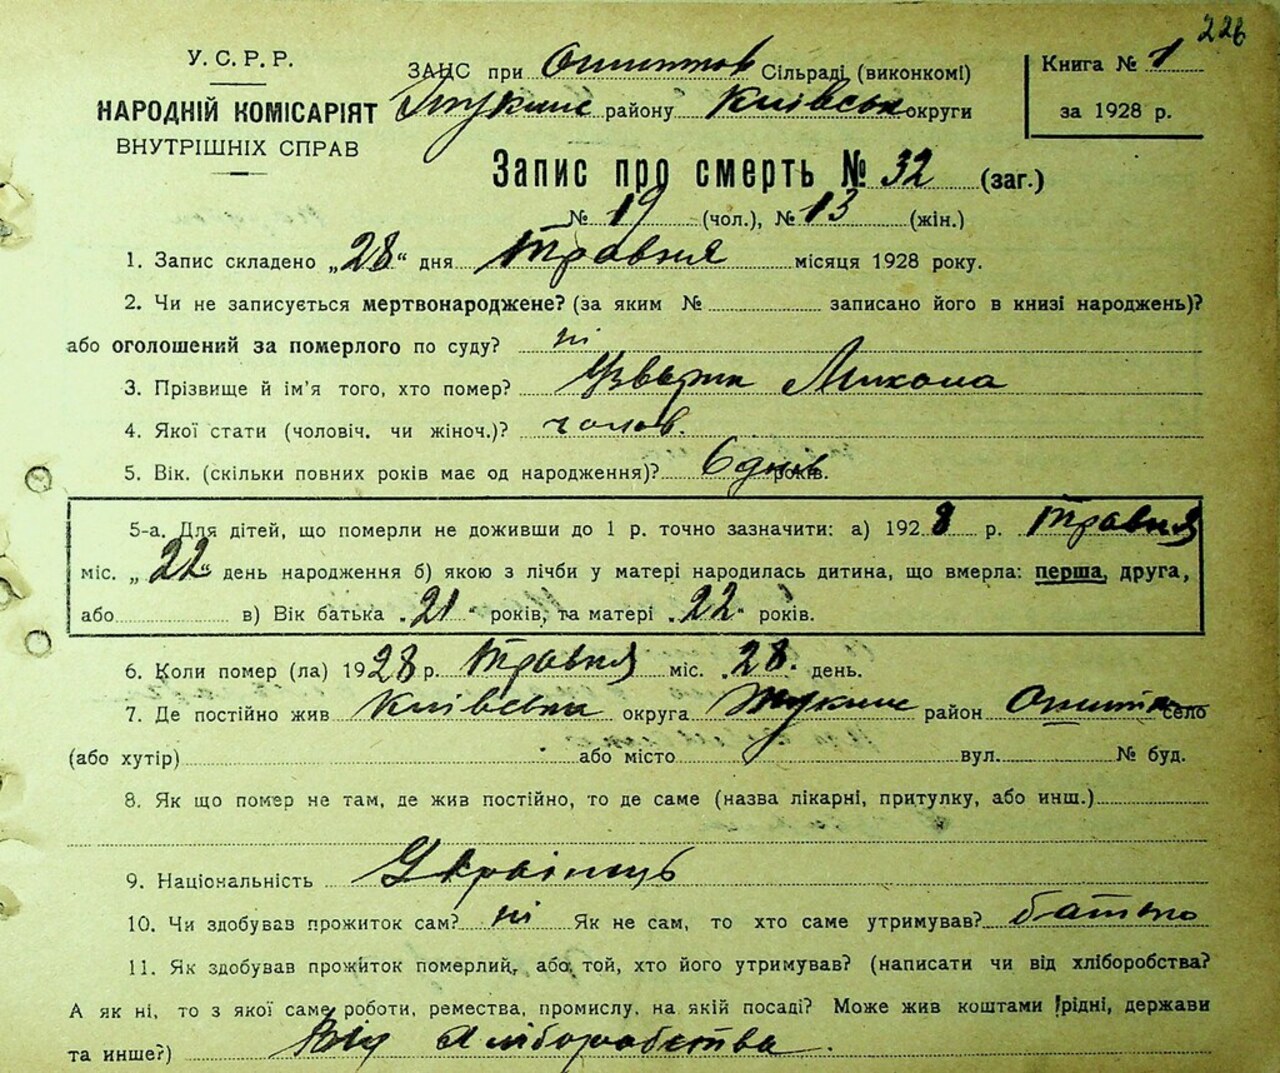 226
У. С. Р. Р.
НАРОДНІЙ КОМІСАРІЯТ
ВНУТРІШНІХ СПРАВ
ЗАГС при Сільраді (виконкомі)
району Київськ округи
Книга № 1
за 1928 р.
Запис про смерть № 32 (заг.)
№ 19 (чол.), № 13 (жін.)
1. Запис складено „28“ дня Травня місяця 1928 року.
2. Чи не записується мертвонароджене? (за яким № записано його в книзі народжень)?
або оголошений за померлого по суду? ні
3. Прізвище й ім'я того, хто помер? Микола
4. Якої стати (чоловіч. чи жіноч.)? чолов.
5. Вік. (скільки повних років має од народження)? 6 днів років.
5-а. Для дітей, що померли не доживши до 1 р. точно зазначити: а) 1928 р. Травня
міс. „22“ день народження б) якою з лічби у матері народилась дитина, що вмерла: перша, друга,
або в) Вік батька „21“ років, та матері „22“ років.
6. Коли помер (ла) 1928 р. Травня міс. „28“ день.
7. Де постійно жив Київська округа район село
(або хутір) або місто вул. № буд.
8. Як що помер не там, де жив постійно, то де саме (назва лікарні, притулку, або инш.)
9. Національність Українець
10. Чи здобував прожиток сам? ні Як не сам, то хто саме утримував? батько
11. Як здобував прожиток померлий, або той, хто його утримував? (написати чи від хліборобства?
А як ні, то з якої саме роботи, ремества, промислу, на якій посаді? Може жив коштами рідні, держави
та инше?) Від хліборобства.